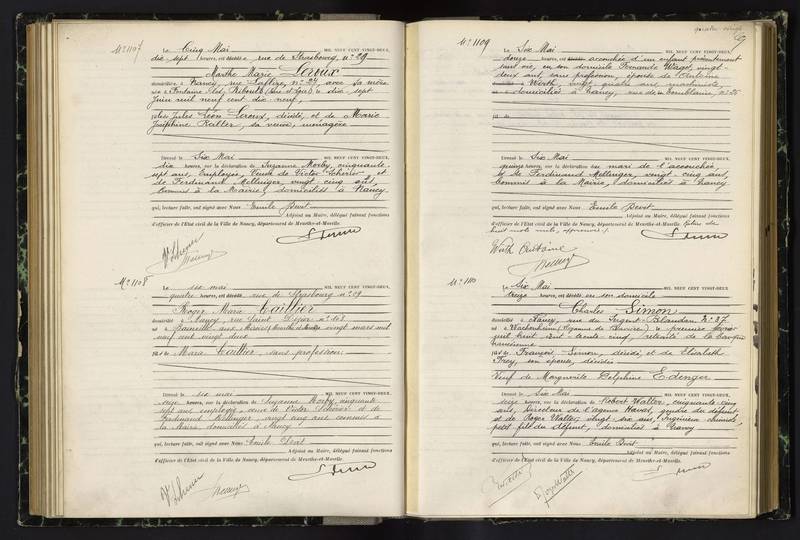 N° 1107
Le Cinq Mai MIL NEUF CENT VINGT-DEUX,
dix sept heures, est décédée rue de Strasbourg, n° 29
Marthe Marie Leroux
domiciliée à Nancy, rue n° 24, avec sa mère
née à Fontaine le dix sept
Juin mil neuf cent dix neuf,
fille Jules Léon Leroux, décédé, et de Marie
Joséphine sa veuve, ménagère
Dressé le Six Mai MIL NEUF CENT VINGT-DEUX,
dix heures, sur la déclaration de Suzanne Morby, cinquante
sept ans, Employée, Veuve de Victor Scherier et
de Ferdinand Mellinger, vingt cinq ans,
Commis à la Mairie, domiciliés à Nancy
qui, lecture faite, ont signé avec Nous Emile
Adjoint au Maire, délégué faisant fonctions
d'officier de l'Etat civil de la Ville de Nancy, département de Meurthe-et-Moselle.
N° 1108
Le six mai MIL NEUF CENT VINGT-DEUX,
quatre heures, est décédé rue de Strasbourg n° 29
Roger Marie Caillier
domicilié à Nancy, rue Saint Dizier n° 108
né à aux (Meurthe et Moselle) vingt mars mil
neuf cent vingt deux
fils de Maria Caillier, sans profession
Dressé le six mai MIL NEUF CENT VINGT-DEUX,
seize heures, sur la déclaration de Suzanne Morby, cinquante
sept ans employée, veuve de Victor Scherier et de
Ferdinand Mellinger vingt cinq ans commis à
la Mairie, domiciliés à Nancy
qui, lecture faite, ont signé avec Nous Emile
Adjoint au Maire, délégué faisant fonctions
d'officier de l'Etat civil de la Ville de Nancy, département de Meurthe-et-Moselle.
quatre-vingt
N° 1109
Le Six Mai MIL NEUF CENT VINGT-DEUX,
douze heures, est accouchée d'un enfant présentement
sans vie, en son domicile Fernande vingt
deux ans, sans profession, épouse de Antoine
Wirth, vingt quatre ans
domiciliés à Nancy, rue n° 25
Dressé le Six Mai MIL NEUF CENT VINGT-DEUX,
quinze heures, sur la déclaration du mari de l'accouchée
et de Ferdinand Mellinger, vingt cinq ans,
Commis à la Mairie, domiciliés à Nancy
qui, lecture faite, ont signé avec Nous Emile
Adjoint au Maire, délégué faisant fonctions
d'officier de l'Etat civil de la Ville de Nancy, département de Meurthe-et-Moselle.
huit mots nuls, approuvés
Wirth Antoine
N° 1110
Le Six Mai MIL NEUF CENT VINGT-DEUX,
treize heures, est décédé en son domicile
Charles Simon
domicilié à Nancy, rue du Sergent Blandan N° 37
né à Wachenheim (Royaume de Bavière) le premier février
mil huit cent trente cinq, retraité de la
fils de François Simon, décédé, et de Elisabeth
Frey, son épouse, décédée
Veuf de Marguerite Delphine Edinger
Dressé le Six Mai MIL NEUF CENT VINGT-DEUX,
seize heures, sur la déclaration de Robert Walter, cinquante cinq
ans, Directeur de l'agence Havas, gendre du défunt
et de Roger Walter, vingt six ans, Ingénieur chimiste,
petit fils du défunt, domiciliés à Nancy
qui, lecture faite, ont signé avec Nous Emile
Adjoint au Maire, délégué faisant fonctions
d'officier de l'Etat civil de la Ville de Nancy, département de Meurthe-et-Moselle.